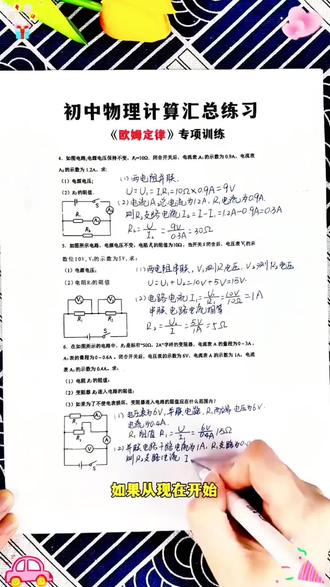 初中物理计算汇总练习
《欧姆定律》专项训练
4．如图电路，电源电压保持不变，R₁=10Ω．闭合开关后，电流表 A₁ 的示数为 0.9A，电流表
A₂ 的示数为 1.2A．求：
(1) 电源电压；
(2) R₂ 的阻值．
(1) 两电阻并联．
U=U₁=I₁R₁=10Ω×0.9A=9V
(2) 电流
I₂=I-I₁=1.2A-0.9A=0.3A
R₂=U/I₂=9V/0.3A=30Ω
5．如图所示电路，电源电压不变，电阻 R₁ 的阻值为 10Ω，当开关 S 闭合后，电压表 V₁ 的示
数位 10V，V₂ 的示数为 5V，求：
(1) 电源电压；
(2) 电阻 R₂ 的阻值
(1) 两电阻串联，V₁测R₁电压，V₂测R₂电压
U=U₁+U₂=10V+5V=15V.
(2) 电路电流 I=U₁/R₁=10V/10Ω=1A
串联电路电流相等
R₂=U₂/I=5V/1A=5Ω
6．在如图所示的电路中，R₂ 是标有“50Ω，2A”字样的变阻器，电流表 A 的量程为 0～3A，
A₁ 表的量程为 0～0.6A，闭合开关后，电压表的示数为 6V，电流表 A 的示数为 1A，电流
表 A₁ 的示数为 0.4A．求：
(1) 电阻 R₁ 的阻值；
(2) 变阻器 R₂ 连入电路的阻值；
(3) 如果为了不使电表损坏，变阻器连入电路的阻值应在什么范围内？
(1) 电压表为6V，并联电路，R₁两端电压为6V
电流为0.4A．
R₁阻值 R₁=U/I₁=6V/0.4A=15Ω
(2) 并联电路干路电流为1A，R₁支路为0.
则R₂支路电流 I
如果从现在开始